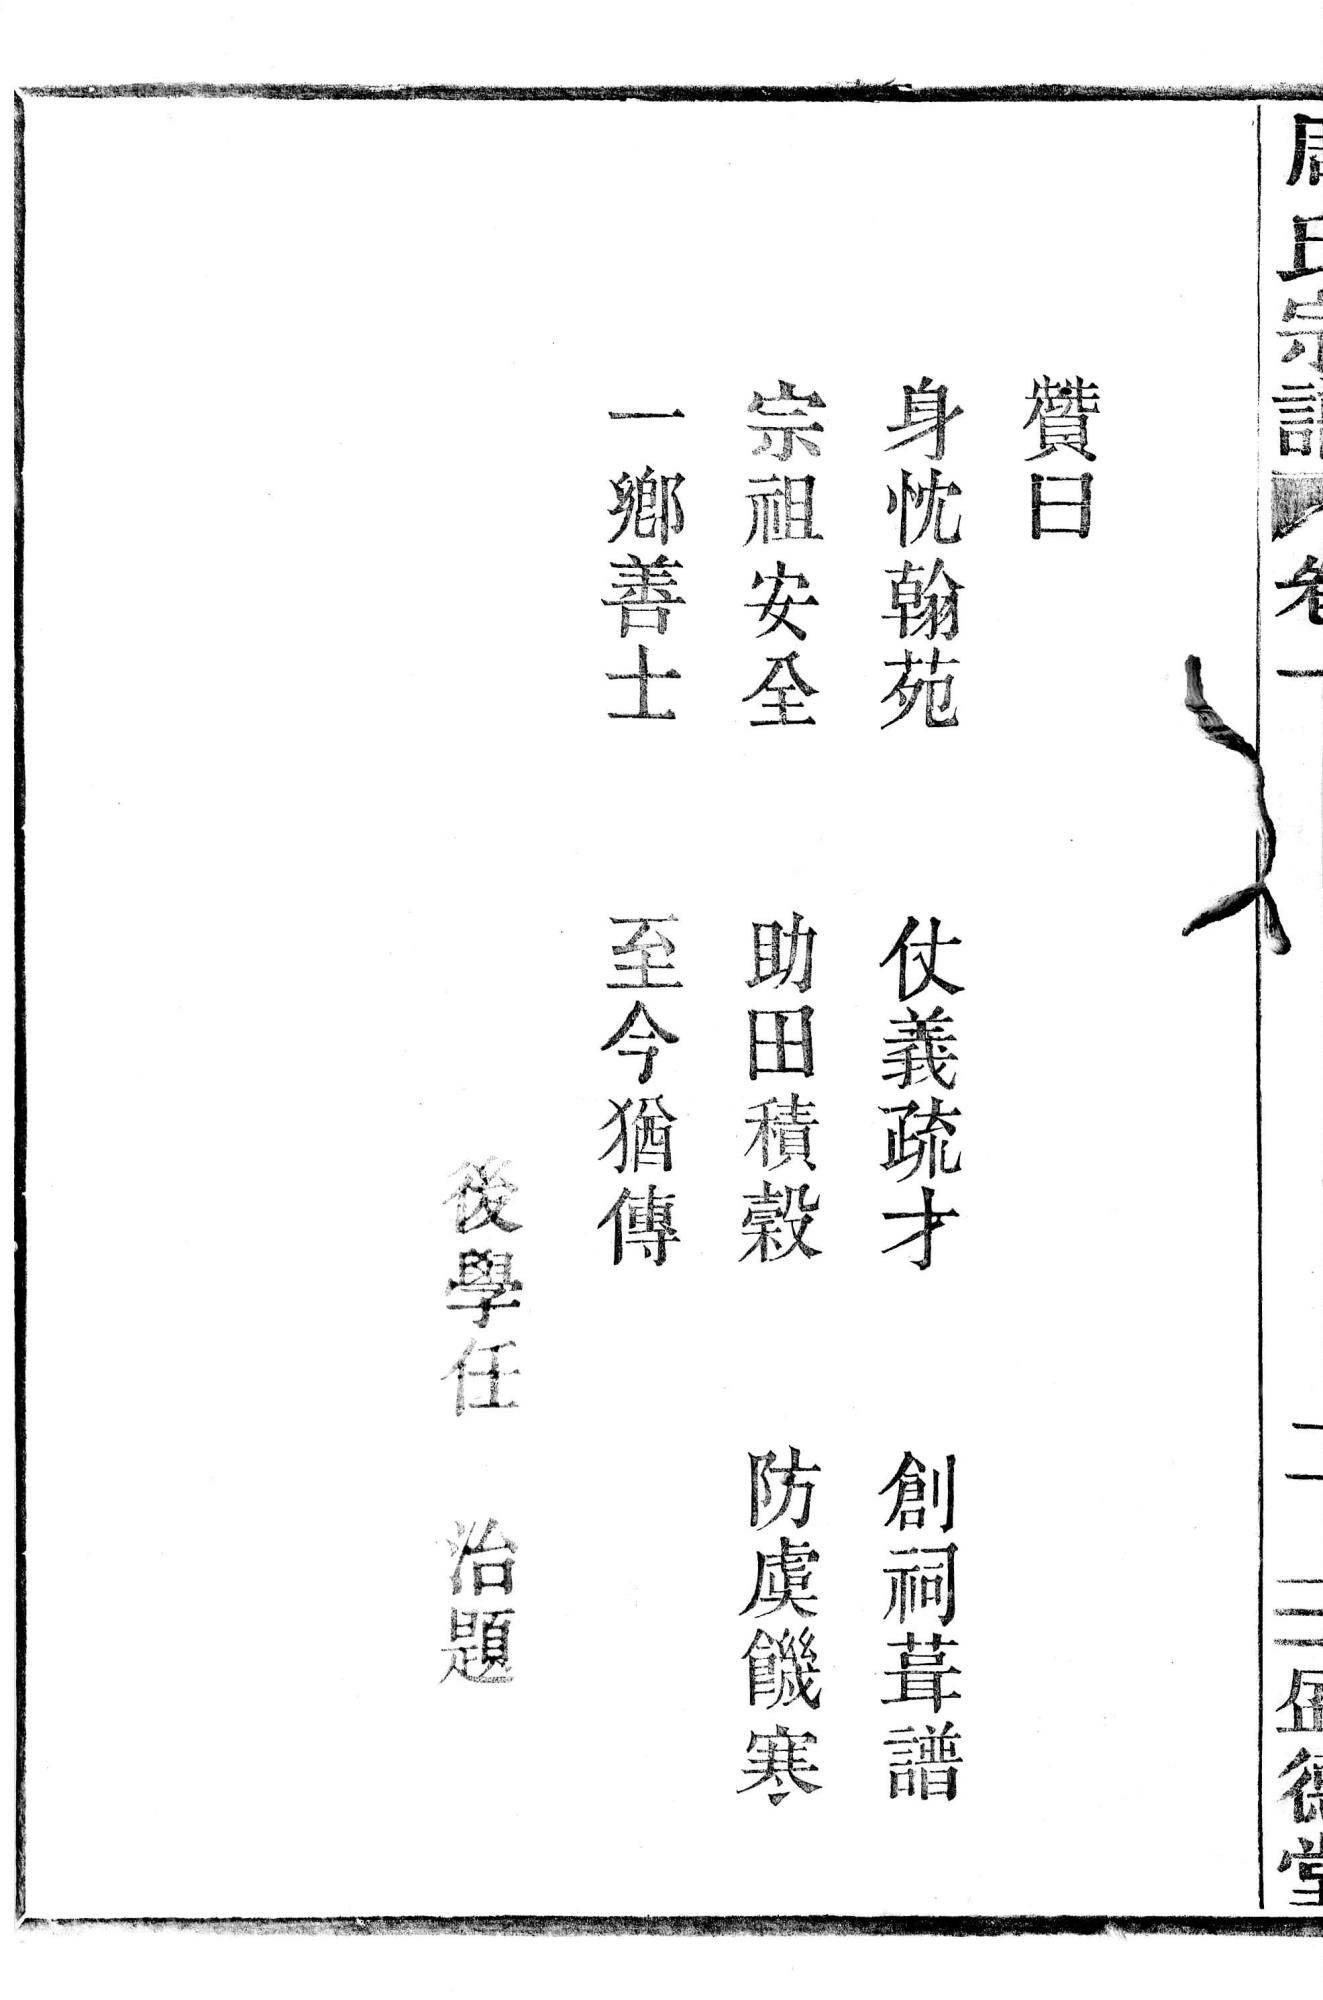 周氏宗譜 卷一 德堂
贊曰
身忱翰苑 仗義疏才 創祠葺譜
宗祖安全 助田積穀 防虞饑寒
一鄉善士 至今猶傳
後學任 治題